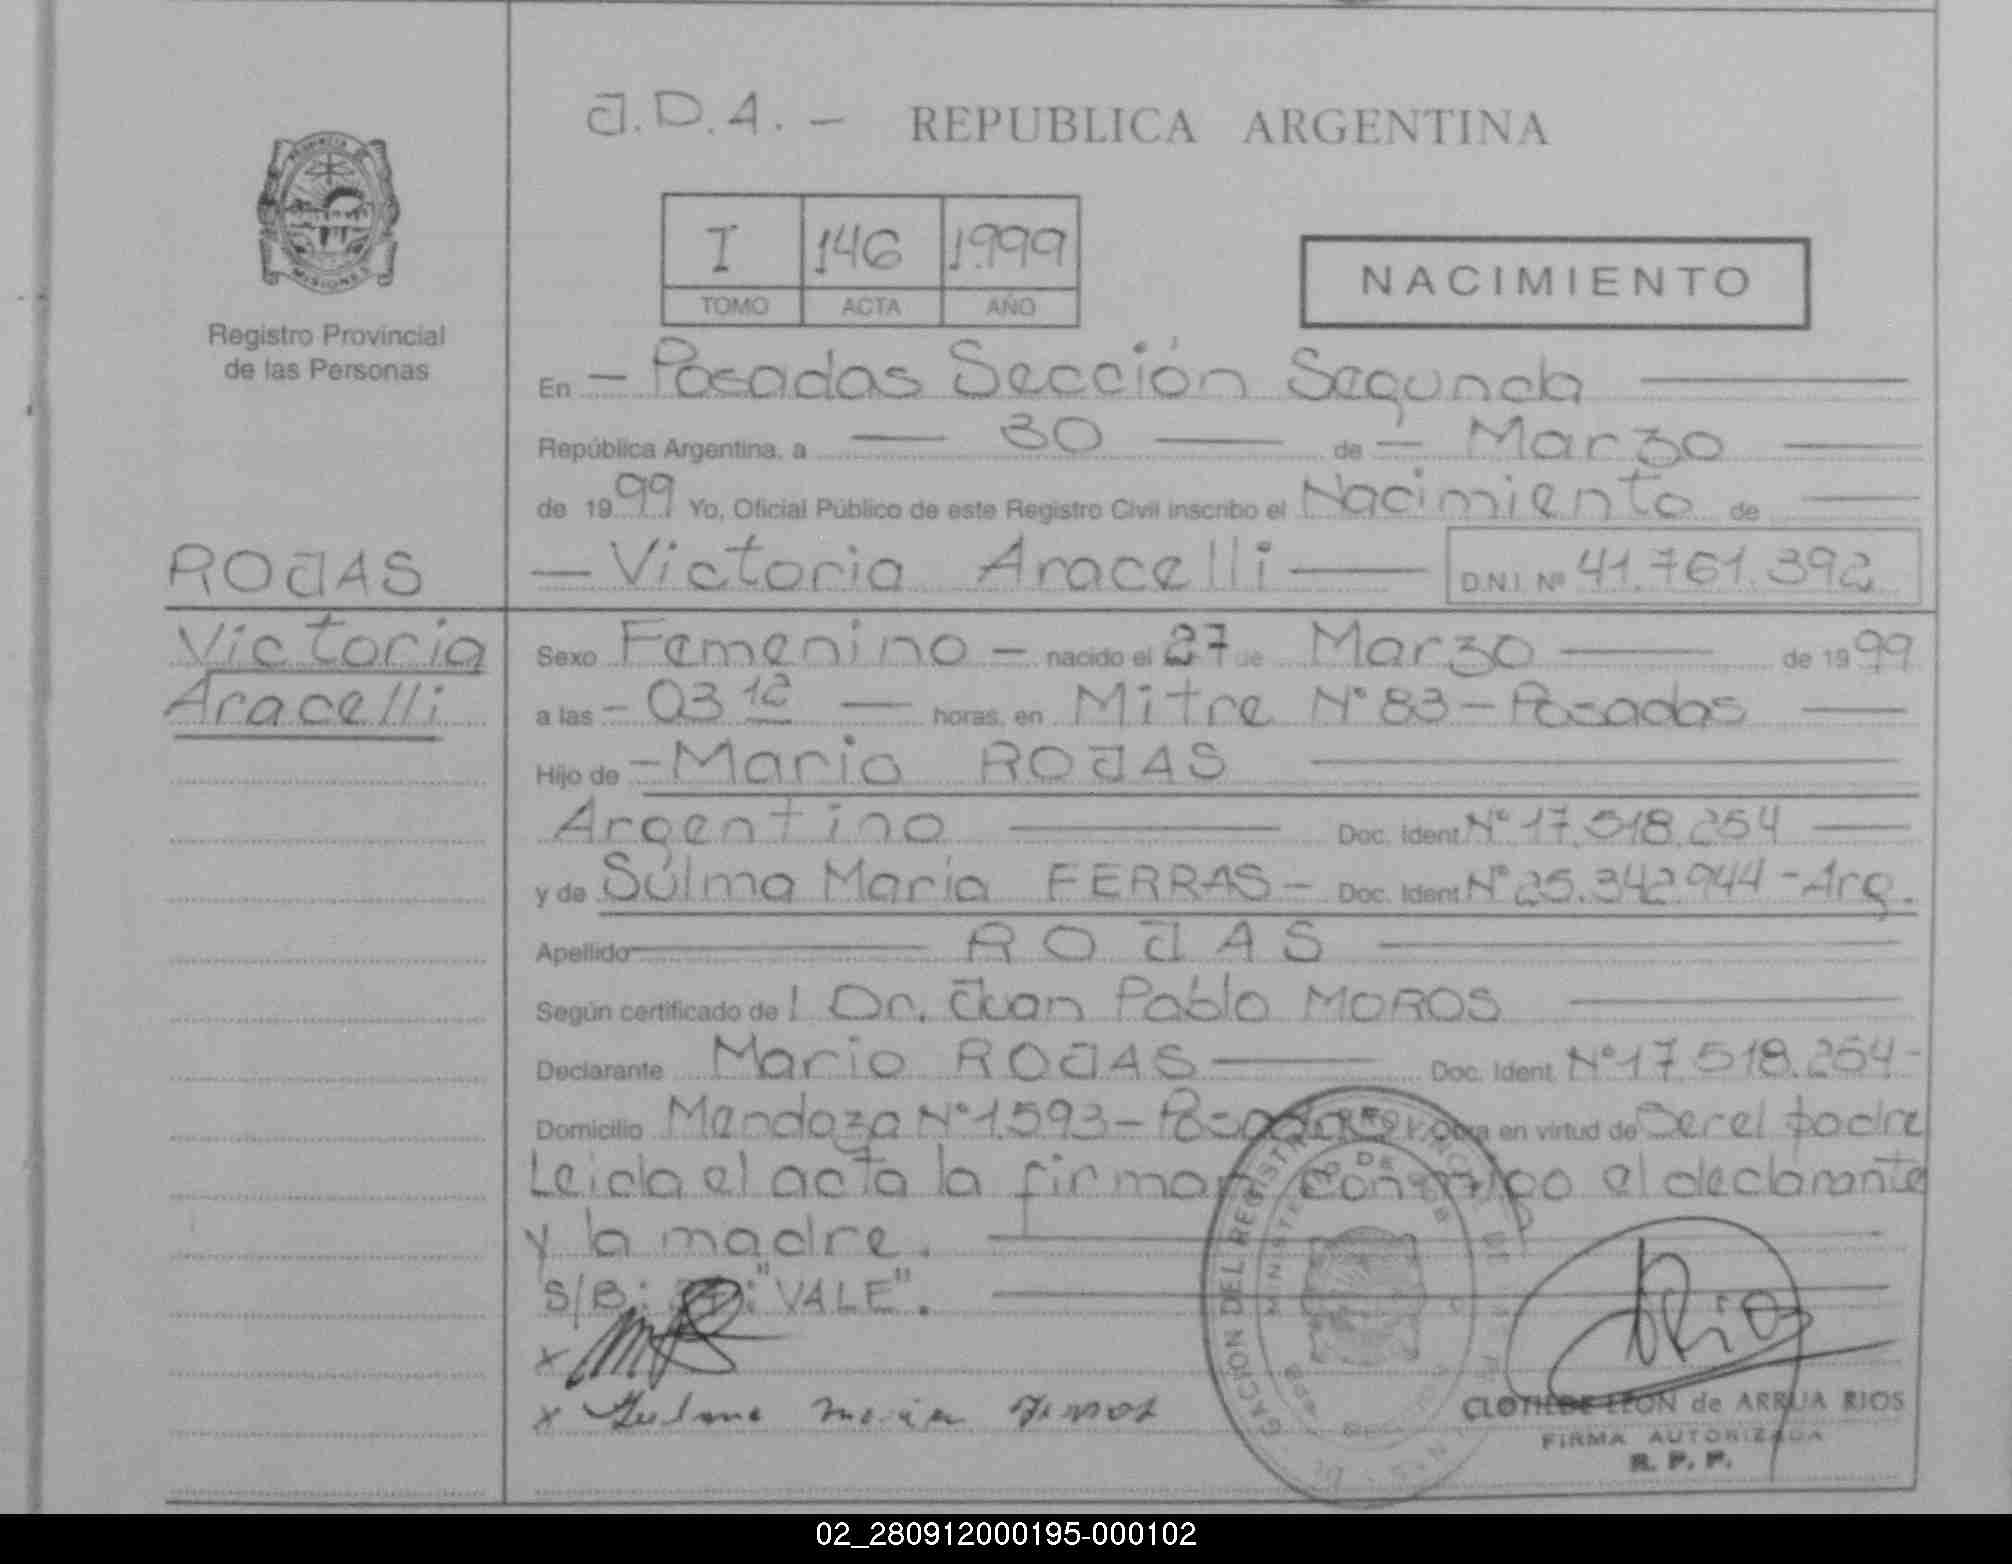 J.D.A. - REPUBLICA ARGENTINA
PROVINCIA DE
MISIONES
Registro Provincial
de las Personas
I 146 1.999
TOMO ACTA AÑO
NACIMIENTO
En - Posadas Sección Segunda
República Argentina, a 30 de - Marzo
de 1999 Yo, Oficial Público de este Registro Civil inscribo el Nacimiento de
ROJAS
- Victoria Aracelli - D.N.I. Nº 41.761.392
Victoria
Aracelli
Sexo Femenino - nacido el 27 de Marzo de 1999
a las - 03 12 - horas, en Mitre Nº 83 - Posadas
Hijo de - Mario ROJAS
Argentino Doc. Ident. Nº 17.518.254
y de Sulma Maria FERRAS - Doc. Ident. Nº 25.342.944 - Arg.
Apellido ROJAS
Según certificado de l Dr. Juan Pablo MOROS
Declarante Mario ROJAS Doc. Ident. Nº 17.518.254 -
Domicilio Mendoza Nº 1.593 - Posadas en virtud de Ser el padre
Leida el acta la firman conmigo el declarante
y la madre.
S/B: : "VALE".
x
x Sulma Maria Ferras
Rios
CLOTILDE LEON de ARRUA RIOS
FIRMA AUTORIZADA
R. P. P.
02_280912000195-000102